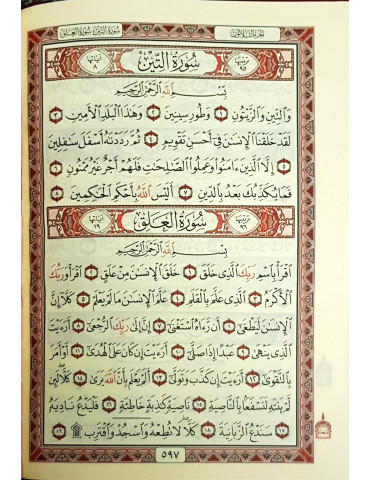 سورة التين سورة العلق
الجزء الثلاثون
ترتيبها ٩٥ سُورَةُ التِّينِ آياتها ٨
بِسْمِ اللَّهِ الرَّحْمَٰنِ الرَّحِيمِ
وَالتِّينِ وَالزَّيْتُونِ ١ وَطُورِ سِينِينَ ٢ وَهَٰذَا الْبَلَدِ الْأَمِينِ ٣
لَقَدْ خَلَقْنَا الْإِنسَٰنَ فِي أَحْسَنِ تَقْوِيمٍ ٤ ثُمَّ رَدَدْنَٰهُ أَسْفَلَ سَٰفِلِينَ
٥ إِلَّا الَّذِينَ ءَامَنُوا وَعَمِلُوا الصَّٰلِحَٰتِ فَلَهُمْ أَجْرٌ غَيْرُ مَمْنُونٍ ٦
فَمَا يُكَذِّبُكَ بَعْدُ بِالدِّينِ ٧ أَلَيْسَ اللَّهُ بِأَحْكَمِ الْحَٰكِمِينَ ٨
ترتيبها ٩٦ سُورَةُ الْعَلَقِ آياتها ١٩
بِسْمِ اللَّهِ الرَّحْمَٰنِ الرَّحِيمِ
اقْرَأْ بِاسْمِ رَبِّكَ الَّذِي خَلَقَ ١ خَلَقَ الْإِنسَٰنَ مِنْ عَلَقٍ ٢ اقْرَأْ وَرَبُّكَ
الْأَكْرَمُ ٣ الَّذِي عَلَّمَ بِالْقَلَمِ ٤ عَلَّمَ الْإِنسَٰنَ مَا لَمْ يَعْلَمْ ٥ كَلَّا إِنَّ
الْإِنسَٰنَ لَيَطْغَىٰ ٦ أَن رَّءَاهُ اسْتَغْنَىٰ ٧ إِنَّ إِلَىٰ رَبِّكَ الرُّجْعَىٰ ٨ أَرَءَيْتَ
الَّذِي يَنْهَىٰ ٩ عَبْدًا إِذَا صَلَّىٰ ١٠ أَرَءَيْتَ إِن كَانَ عَلَى الْهُدَىٰ ١١ أَوْ أَمَرَ
بِالتَّقْوَىٰ ١٢ أَرَءَيْتَ إِن كَذَّبَ وَتَوَلَّىٰ ١٣ أَلَمْ يَعْلَم بِأَنَّ اللَّهَ يَرَىٰ ١٤ كَلَّا لَئِن
لَّمْ يَنتَهِ لَنَسْفَعًا بِالنَّاصِيَةِ ١٥ نَاصِيَةٍ كَٰذِبَةٍ خَاطِئَةٍ ١٦ فَلْيَدْعُ نَادِيَهُ
١٧ سَنَدْعُ الزَّبَانِيَةَ ١٨ كَلَّا لَا تُطِعْهُ وَاسْجُدْ وَاقْتَرِب ۩ ١٩
٥٩٧